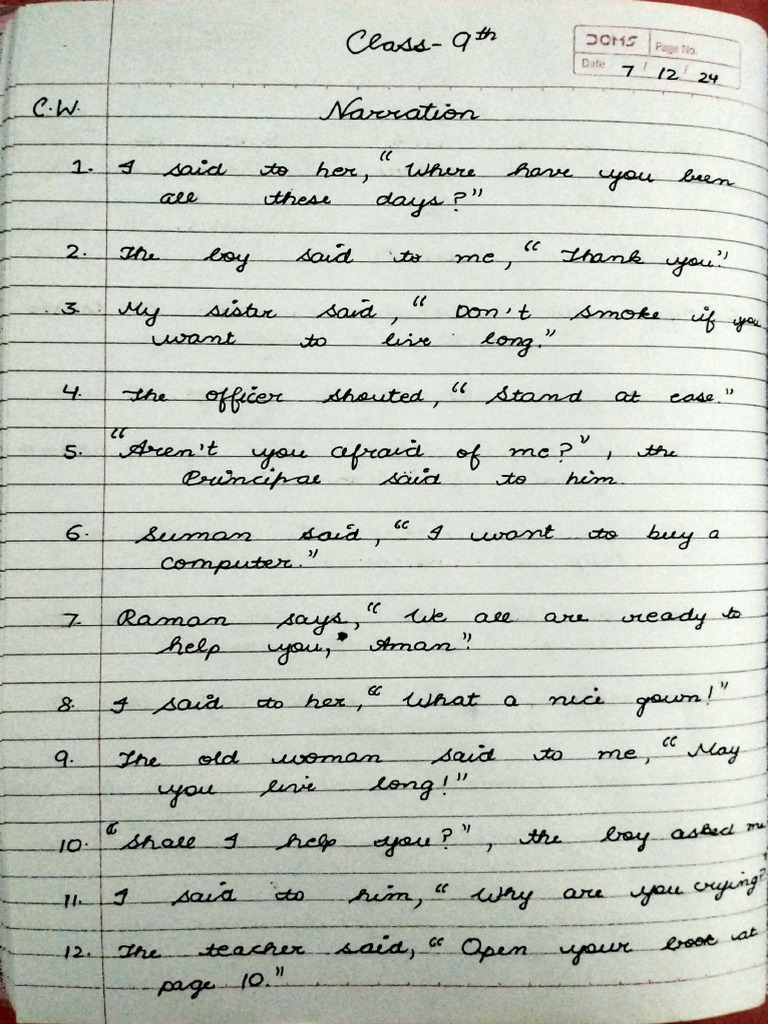 Class- 9th
DOMS Page No.
Date 7 / 12 / 24
C.W. Narration
1. I said to her, "Where have you been
all these days?"
2. The boy said to me, "Thank you"
3. My sister said, "Don't smoke if you
want to live long."
4. The officer shouted, "Stand at ease."
5. "Aren't you afraid of me?", the
Principal said to him.
6. Suman said, "I want to buy a
computer."
7. Raman says, "We all are ready to
help you, Aman".
8. I said to her, "What a nice gown!"
9. The old woman said to me, "May
you live long!"
10. "Shall I help you?", the boy asked me
11. I said to him, "Why are you crying?"
12. The teacher said, "Open your book at
page 10."